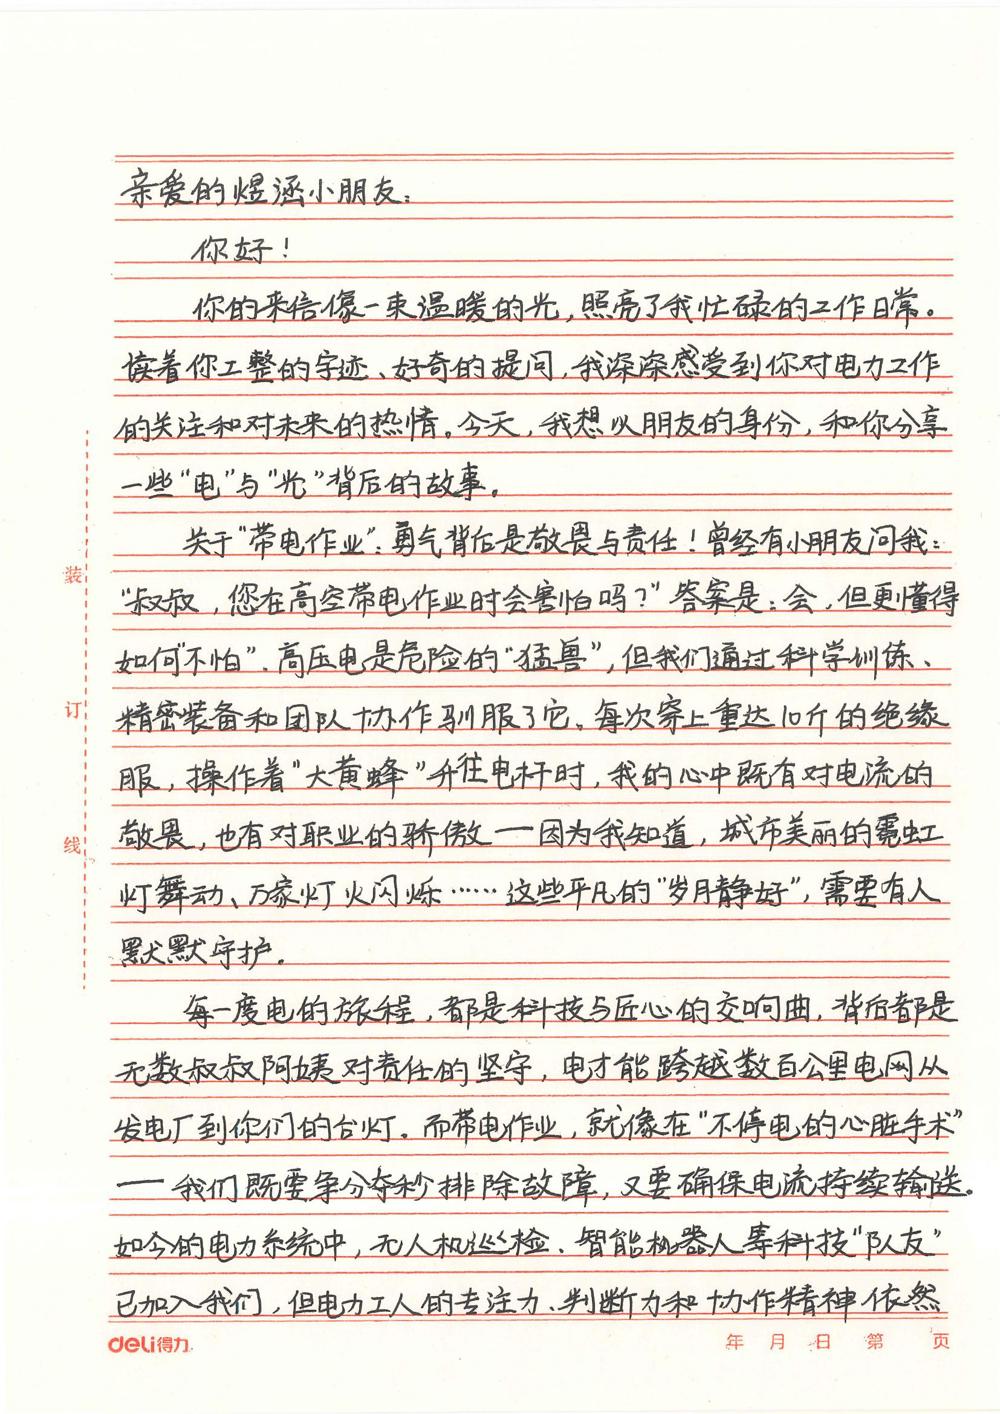 亲爱的煜涵小朋友：
你好！
你的来信像一束温暖的光，照亮了我忙碌的工作日常。
读着你工整的字迹、好奇的提问，我深深感受到你对电力工作
的关注和对未来的热情。今天，我想以朋友的身份，和你分享
一些“电”与“光”背后的故事。
关于“带电作业”：勇气背后是敬畏与责任！曾经有小朋友问我：
“叔叔，您在高空带电作业时会害怕吗？”答案是：会，但更懂得
如何“不怕”。高压电是危险的“猛兽”，但我们通过科学训练、
精密装备和团队协作驯服了它。每次穿上重达10斤的绝缘
服，操作着“大黄蜂”升往电杆时，我的心中既有对电流的
敬畏，也有对职业的骄傲——因为我知道，城市美丽的霓虹
灯舞动、万家灯火闪烁……这些平凡的“岁月静好”，需要有人
默默守护。
每一度电的旅程，都是科技与匠心的交响曲，背后都是
无数叔叔阿姨对责任的坚守，电才能跨越数百公里电网从
发电厂到你们的台灯。而带电作业，就像在“不停电的心脏手术”
——我们既要争分夺秒排除故障，又要确保电流持续输送。
如今的电力系统中，无人机巡检、智能机器人等科技“队友”
已加入我们，但电力工人的专注力、判断力和协作精神依然
装
订
线
deli得力
年 月 日 第 页